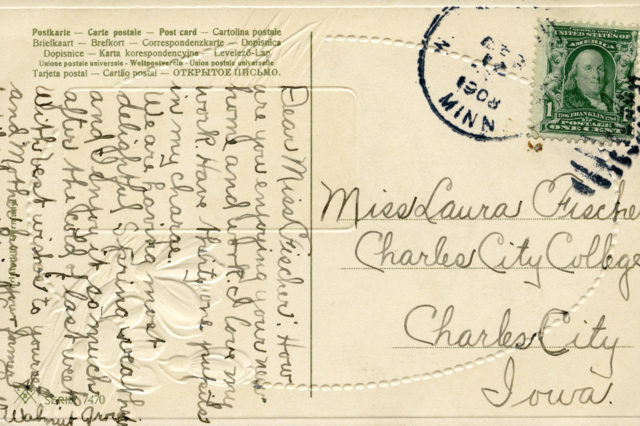 Postkarte — Carte postale — Post card — Cartolina postale
Briefkaart — Brefkort — Correspondenzkarte — Dopisnica
Dopisnice — Karta korespondencyjna — Levelező-Lap
Unione postale universale — Weltpostverein — Union postale universelle
Tarjeta postal — Cartão postal — ОТКРЫТОЕ ПИСЬМО.
MINN
1908
1 FRANKLIN 1
POSTAGE
ONE CENT
Dear Miss Fischer: How
are you enjoying your new
home and work. I love my
work. Have thirty one pupils
in my charge.
We are having most
delightful spring weather
and enjoy it so much
after the cold of last week
With best wishes to yourself
and
Walnut Grove
Miss Laura Fischer
Charles City College
Charles City
Iowa.
SERIE 7470